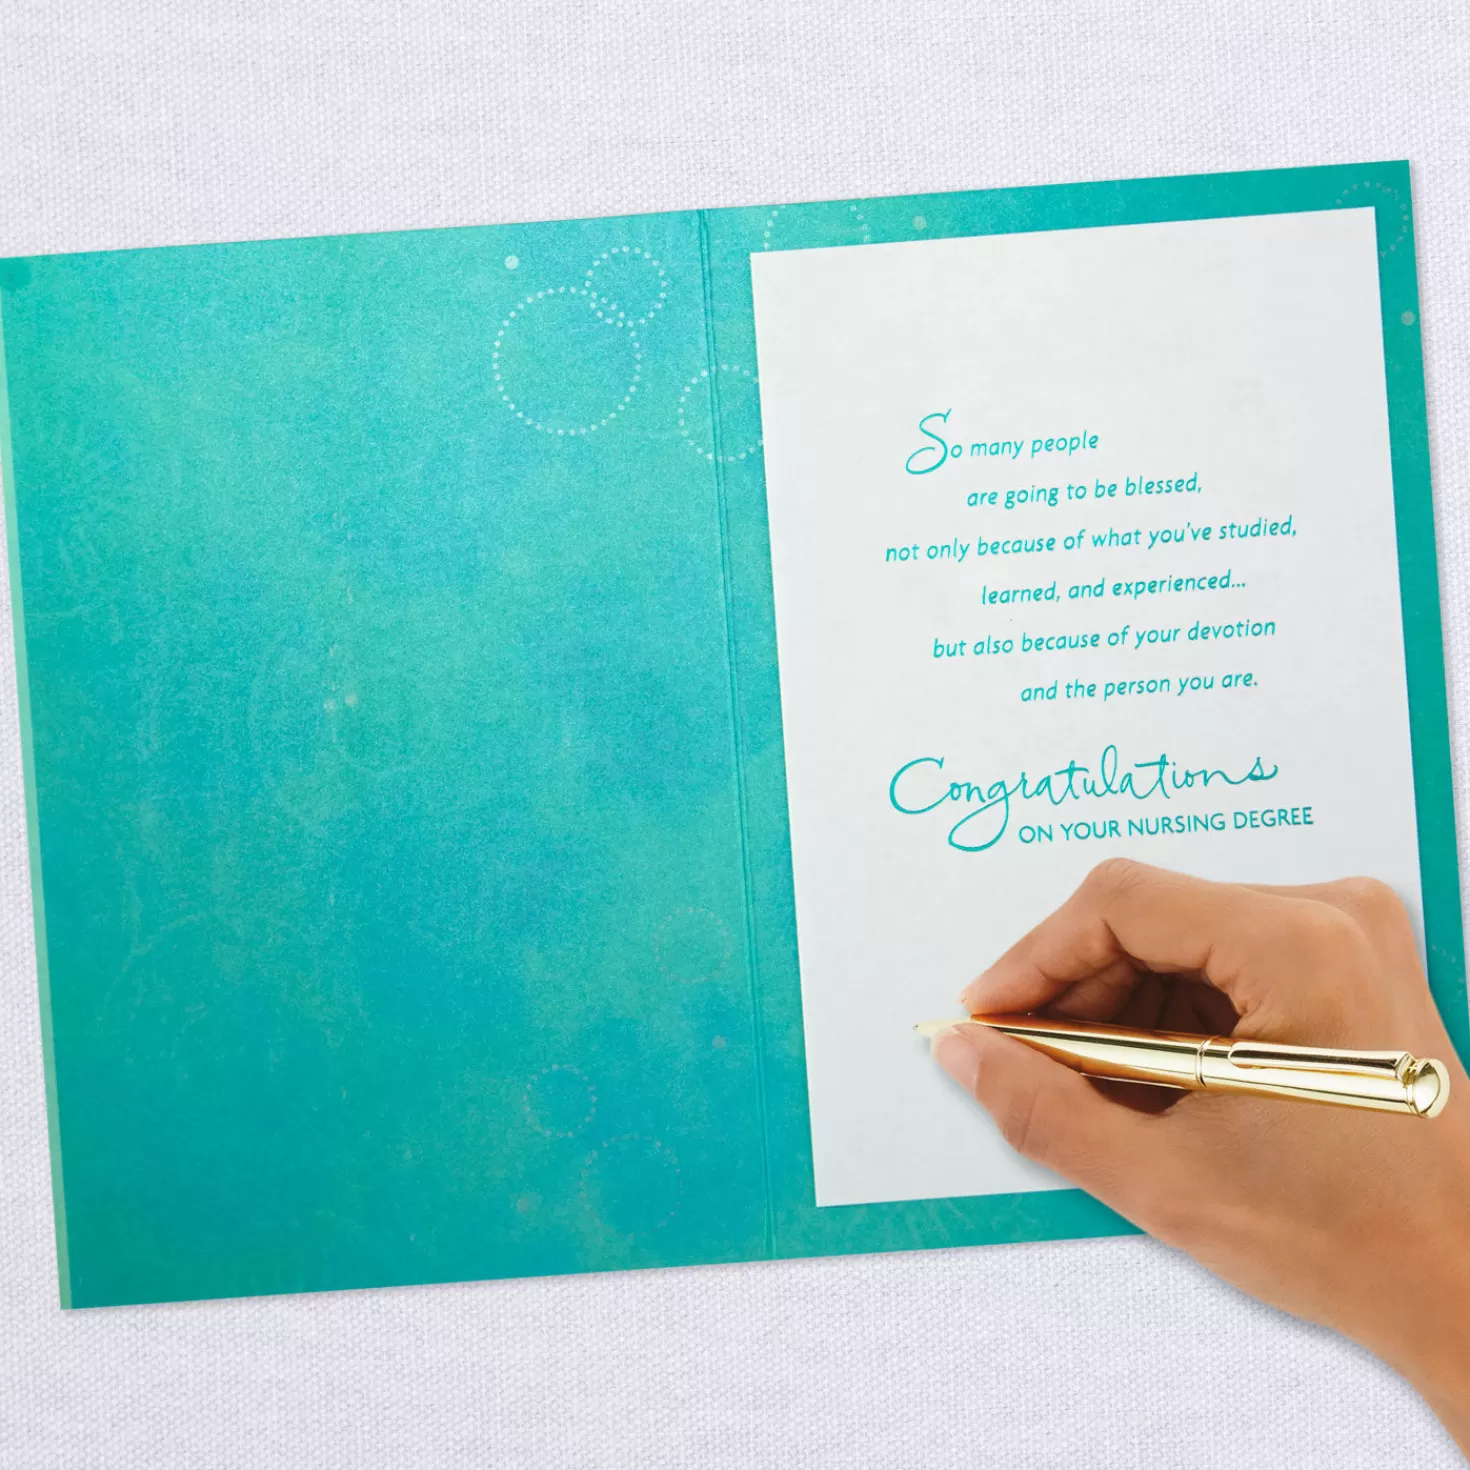 So many people
are going to be blessed,
not only because of what you've studied,
learned, and experienced...
but also because of your devotion
and the person you are.
Congratulations
ON YOUR NURSING DEGREE